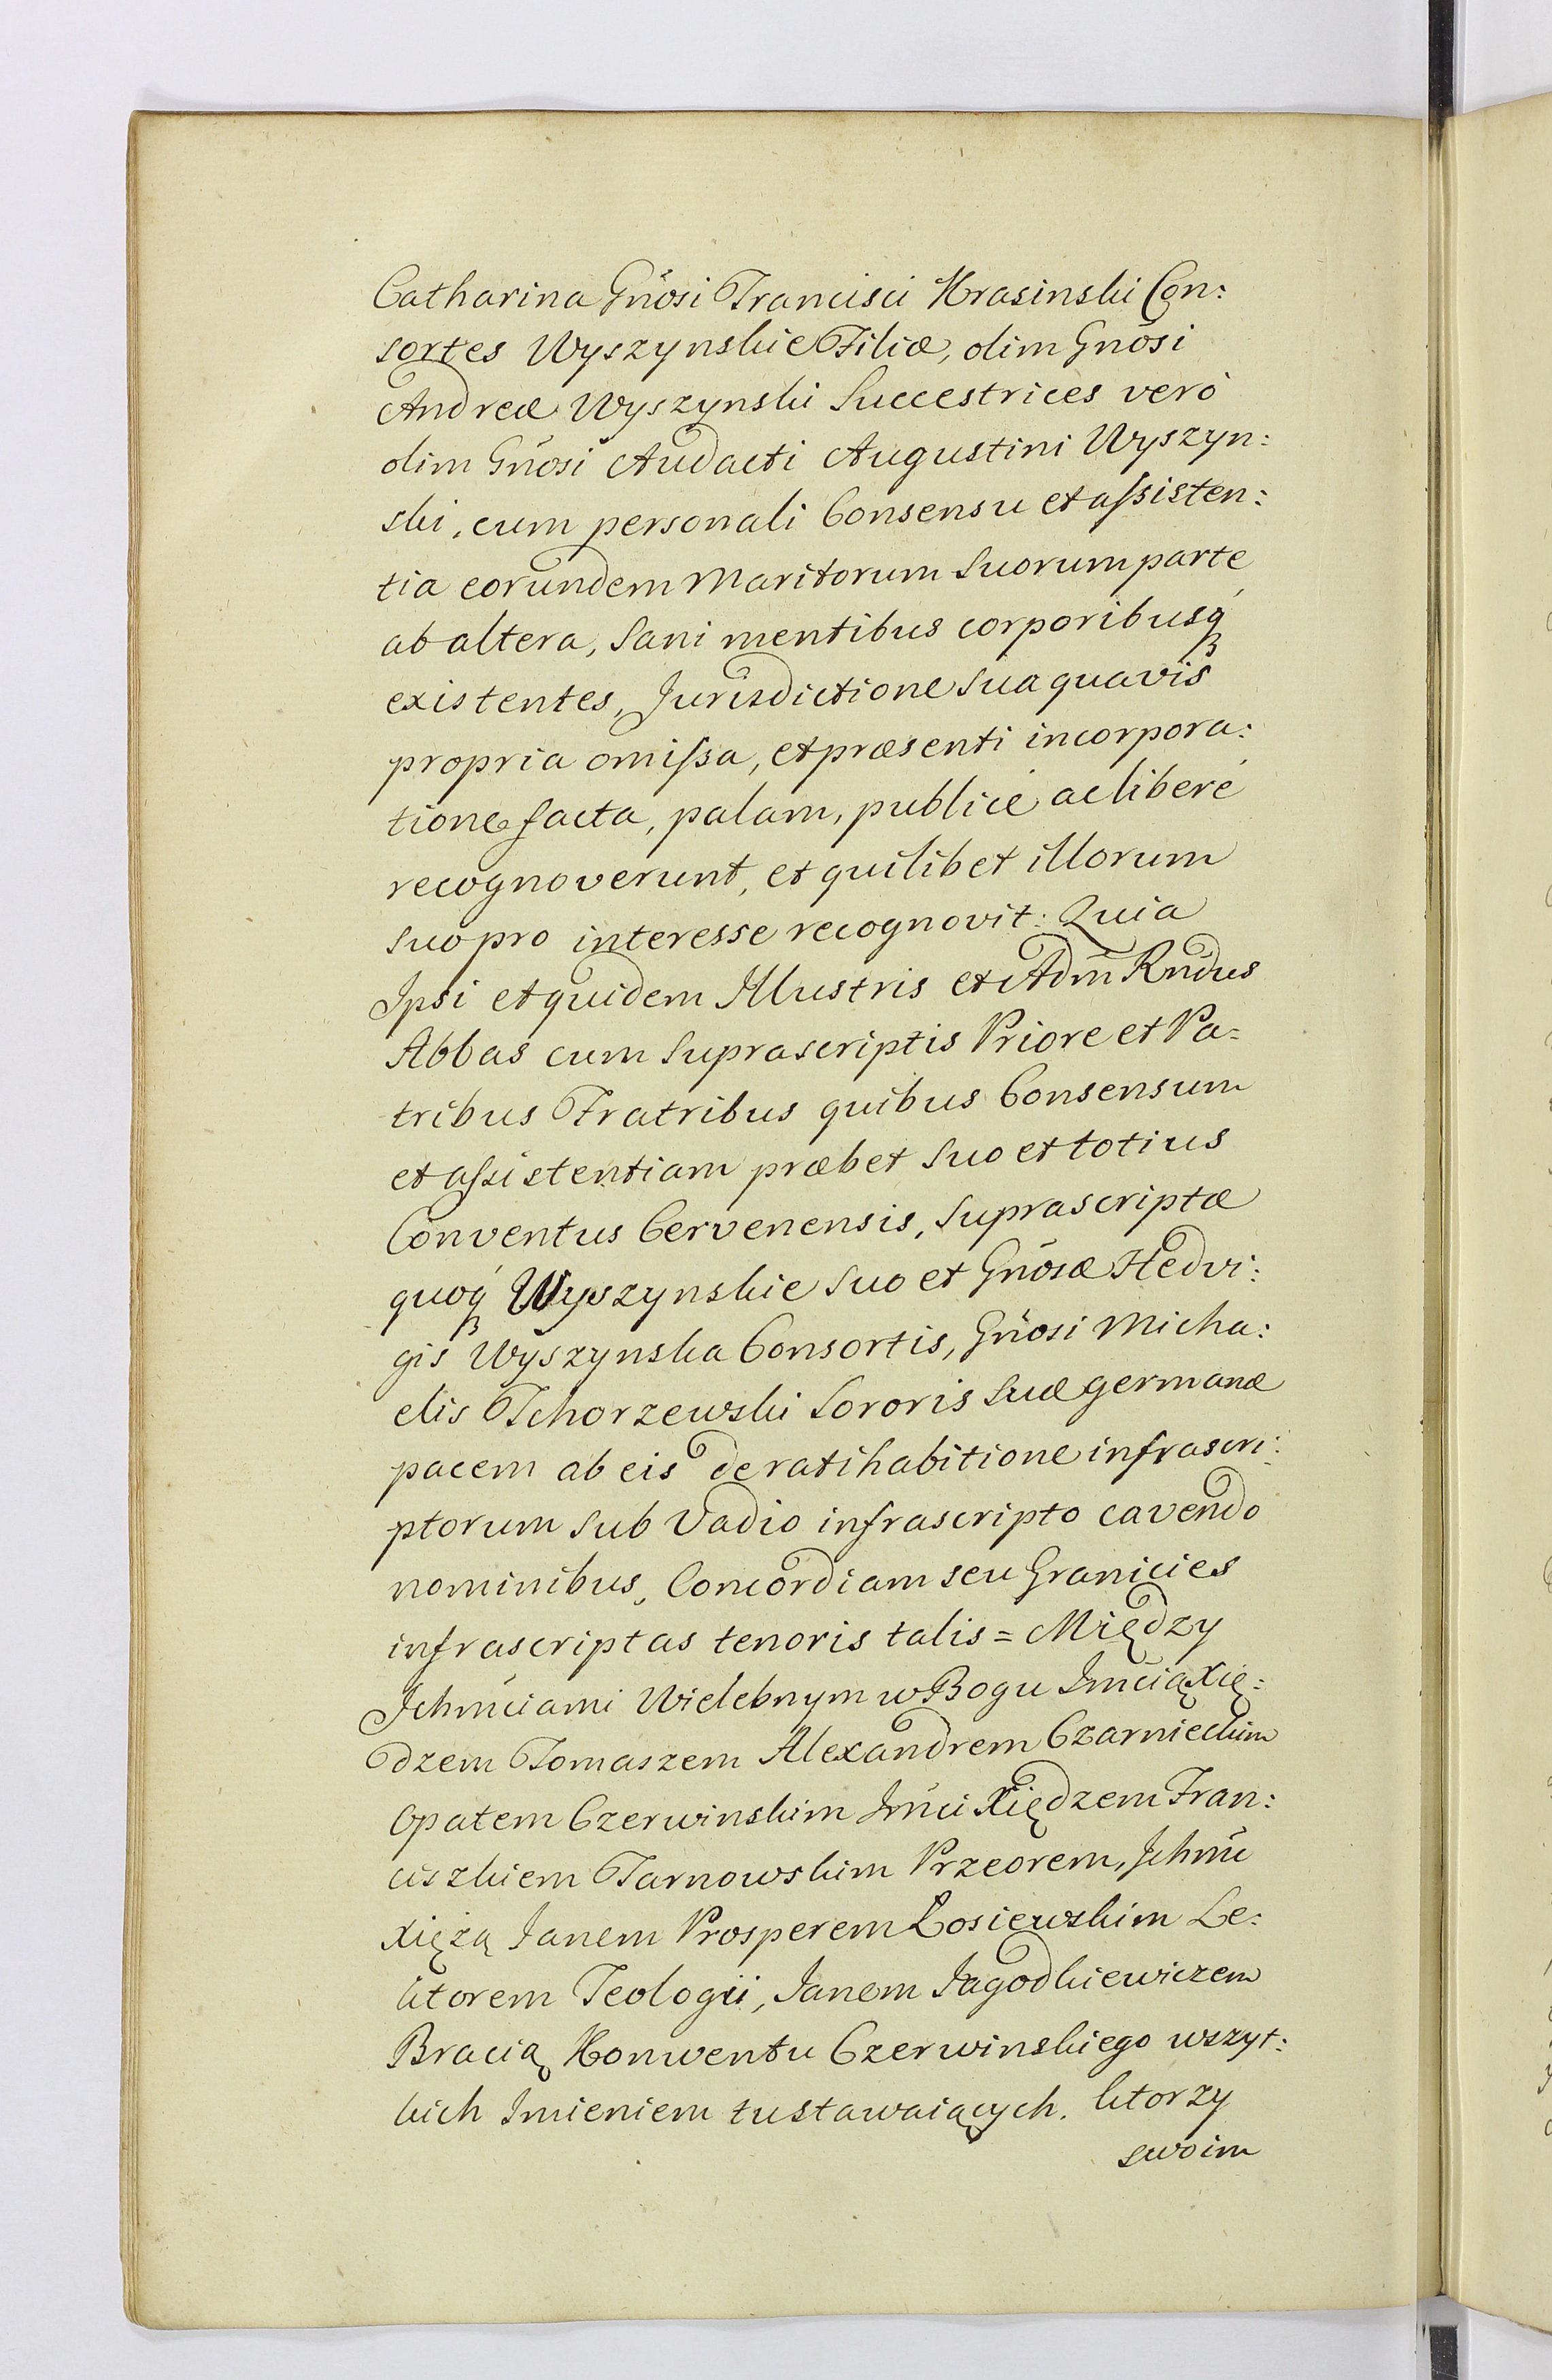 Catharina Gnōsi Francisci Krasinski Con:
sortes Wyszynskie Filiæ, olim Gnōsi
Andreæ Wyszynski Succestrices verò
olim Gnōsi Audacti Augustini Wyszyn:
ski, cum personali Consensu et aſsisten:
tia eorundem Maritorum Suorum parte
ab altera, Sani mentibus corporibusq́ꝫ
existentes, Jurisdictione Sua quavis
propria omiſsa, et præsenti incorpora:
tione facta, palam, publicè ac liberè
recognoverunt, et quilibet illorum
suo pro interesse recognovit: Quia
Ipsi et quidem Illustris et Adm̄ Rnd̄us
Abbas cum Suprascriptis Priore et Pa=
tribus Fratribus quibus Consensum
et aſsistentiam præbet Suo et totius
Conventus Cervenensis, Suprascriptæ
quoq́ꝫ Wyszynskie Suo et Gnōsæ Hedvi:
gis Wyszynska Consortis, Gnōsi Micha:
elis Tchorzewski Sororis Suæ germanæ
pacem ab eis de ratihabitione infrascri:
ptorum sub Vadio infrascripto cavendo
nominibus, Concordiam seu Granicies
infrascriptas tenoris talis = Między
Ichmciami Wielebnym w Bogu Jmcią Xię:
dzem Tomaszem Alexandrem Czarnieckim
Opatem Czerwinskim Jmci Xiędzem Fran:
ciszkiem Tarnowskim Przeorem, Ichmc
xiężą Janem Prosperem Łosiewskim Le:
ktorem Teologii, Janem Jagodkiewiczem
Bracią Konwentu Czerwinskiego wszyt:
kich Jmieniem tu stawaiących. ktorzy
swoim